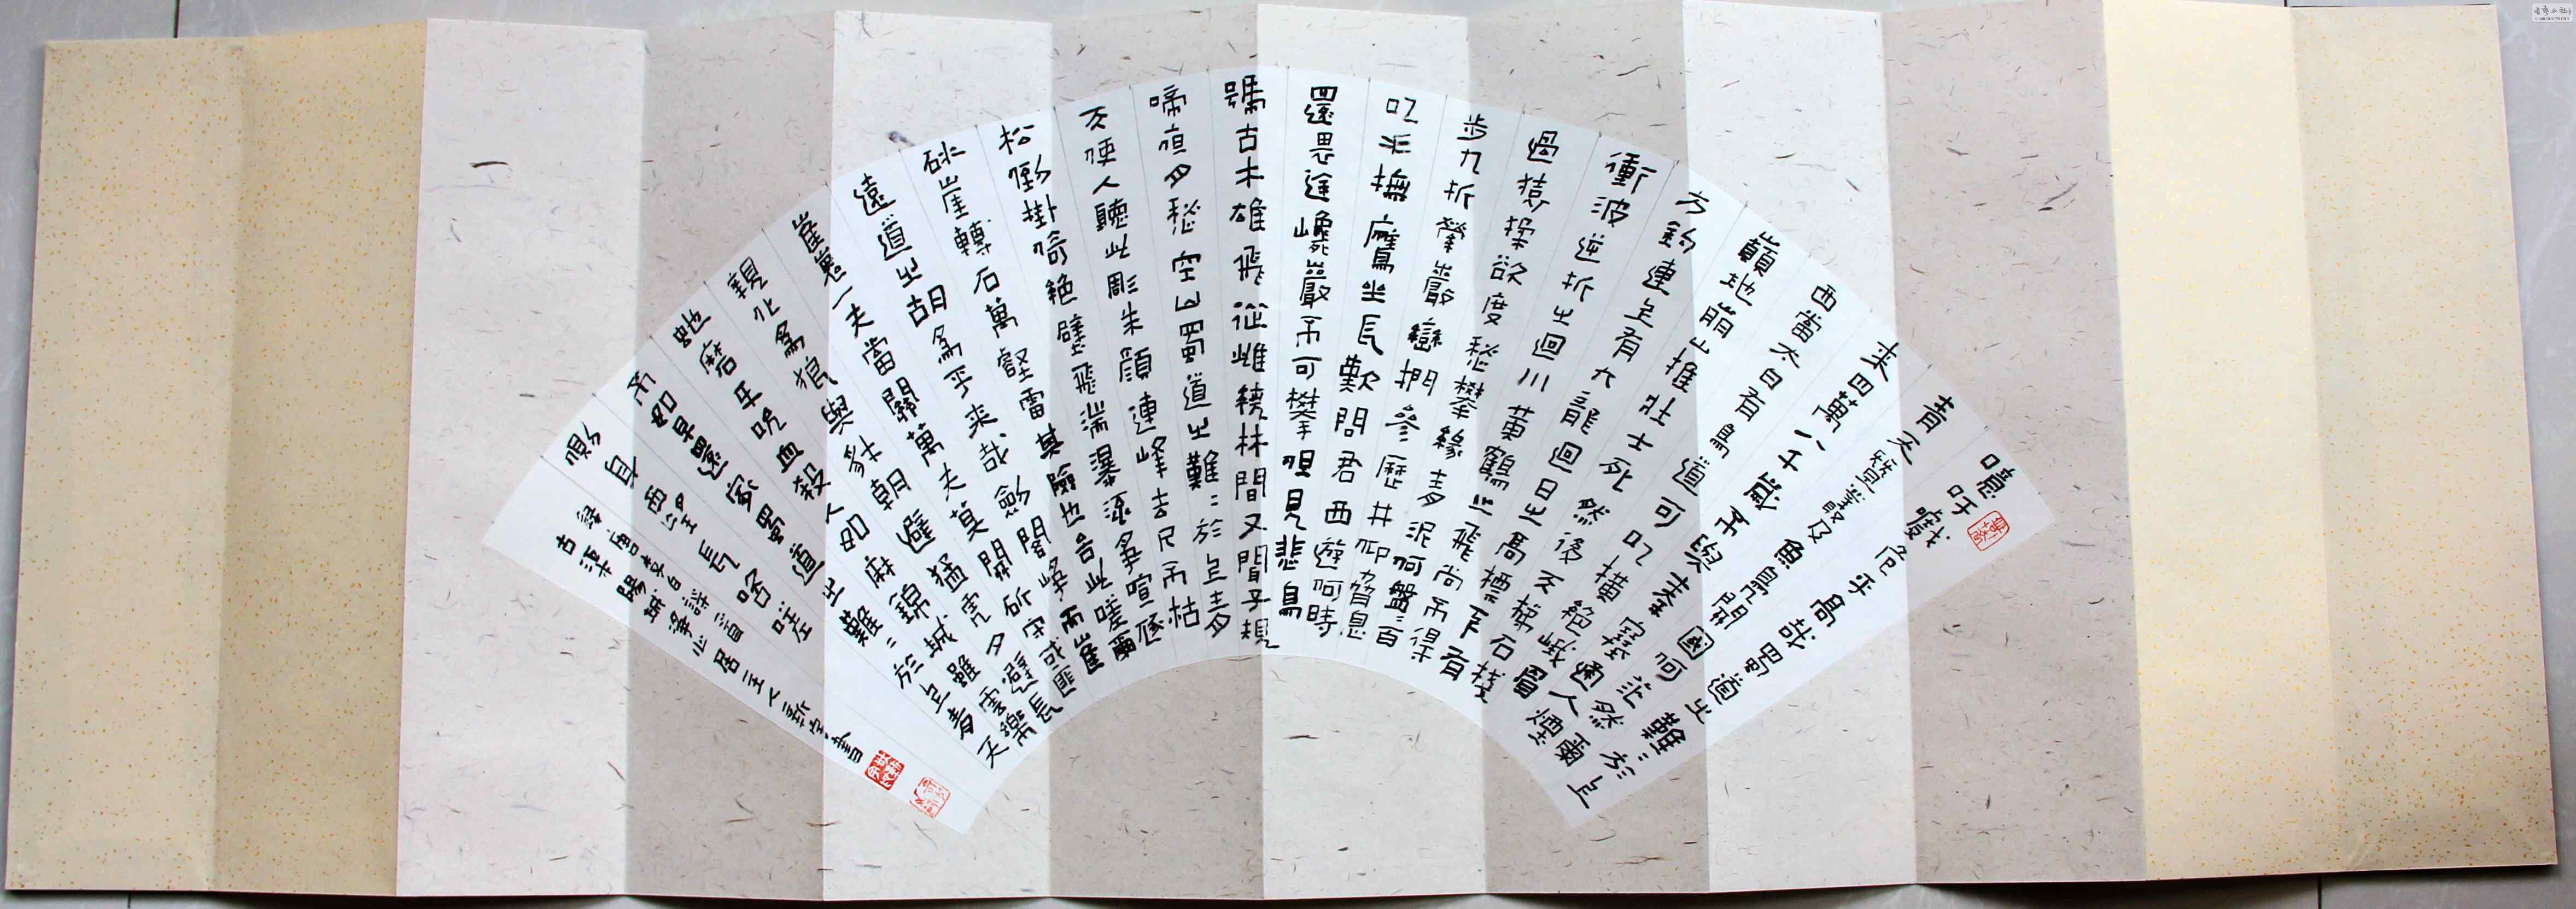 噫吁嚱危乎高哉蜀道之難〻於上
青天蠶叢及魚鳧開國何茫然爾
来四萬八千歲不與秦塞通人煙
西當太白有鳥道可以橫絕峨眉
巔地崩山摧壯士死然後天梯石棧
方鈎連上有六龍迴日之高標下有
衝波逆折之迴川黃鶴之飛尚不得
過猿猱欲度愁攀緣青泥何盤〻百
步九折縈巖巒捫參歷井仰脅息
以手撫膺坐長歎問君西遊何時
還畏途巉巖不可攀但見悲鳥
號古木雄飛從雌繞林間又聞子規
啼夜月愁空山蜀道之難〻於上青
天使人聽此彫朱顏連峰去尺不枯
松倒掛倚絕壁飛湍瀑流爭喧豗
砯崖轉石萬壑雷其險也若此嗟爾
遠道之胡爲乎来哉劍閣崢而崔
嵬一夫當關萬夫莫開所守或匪
親化爲狼與豺朝避猛虎夕避長
虵磨牙吮血殺人如麻錦城雖雲樂
不如早還家蜀道之難〻於上青天
側身西望長咨嗟
唐李白詩一首
古澤陽城居主人書